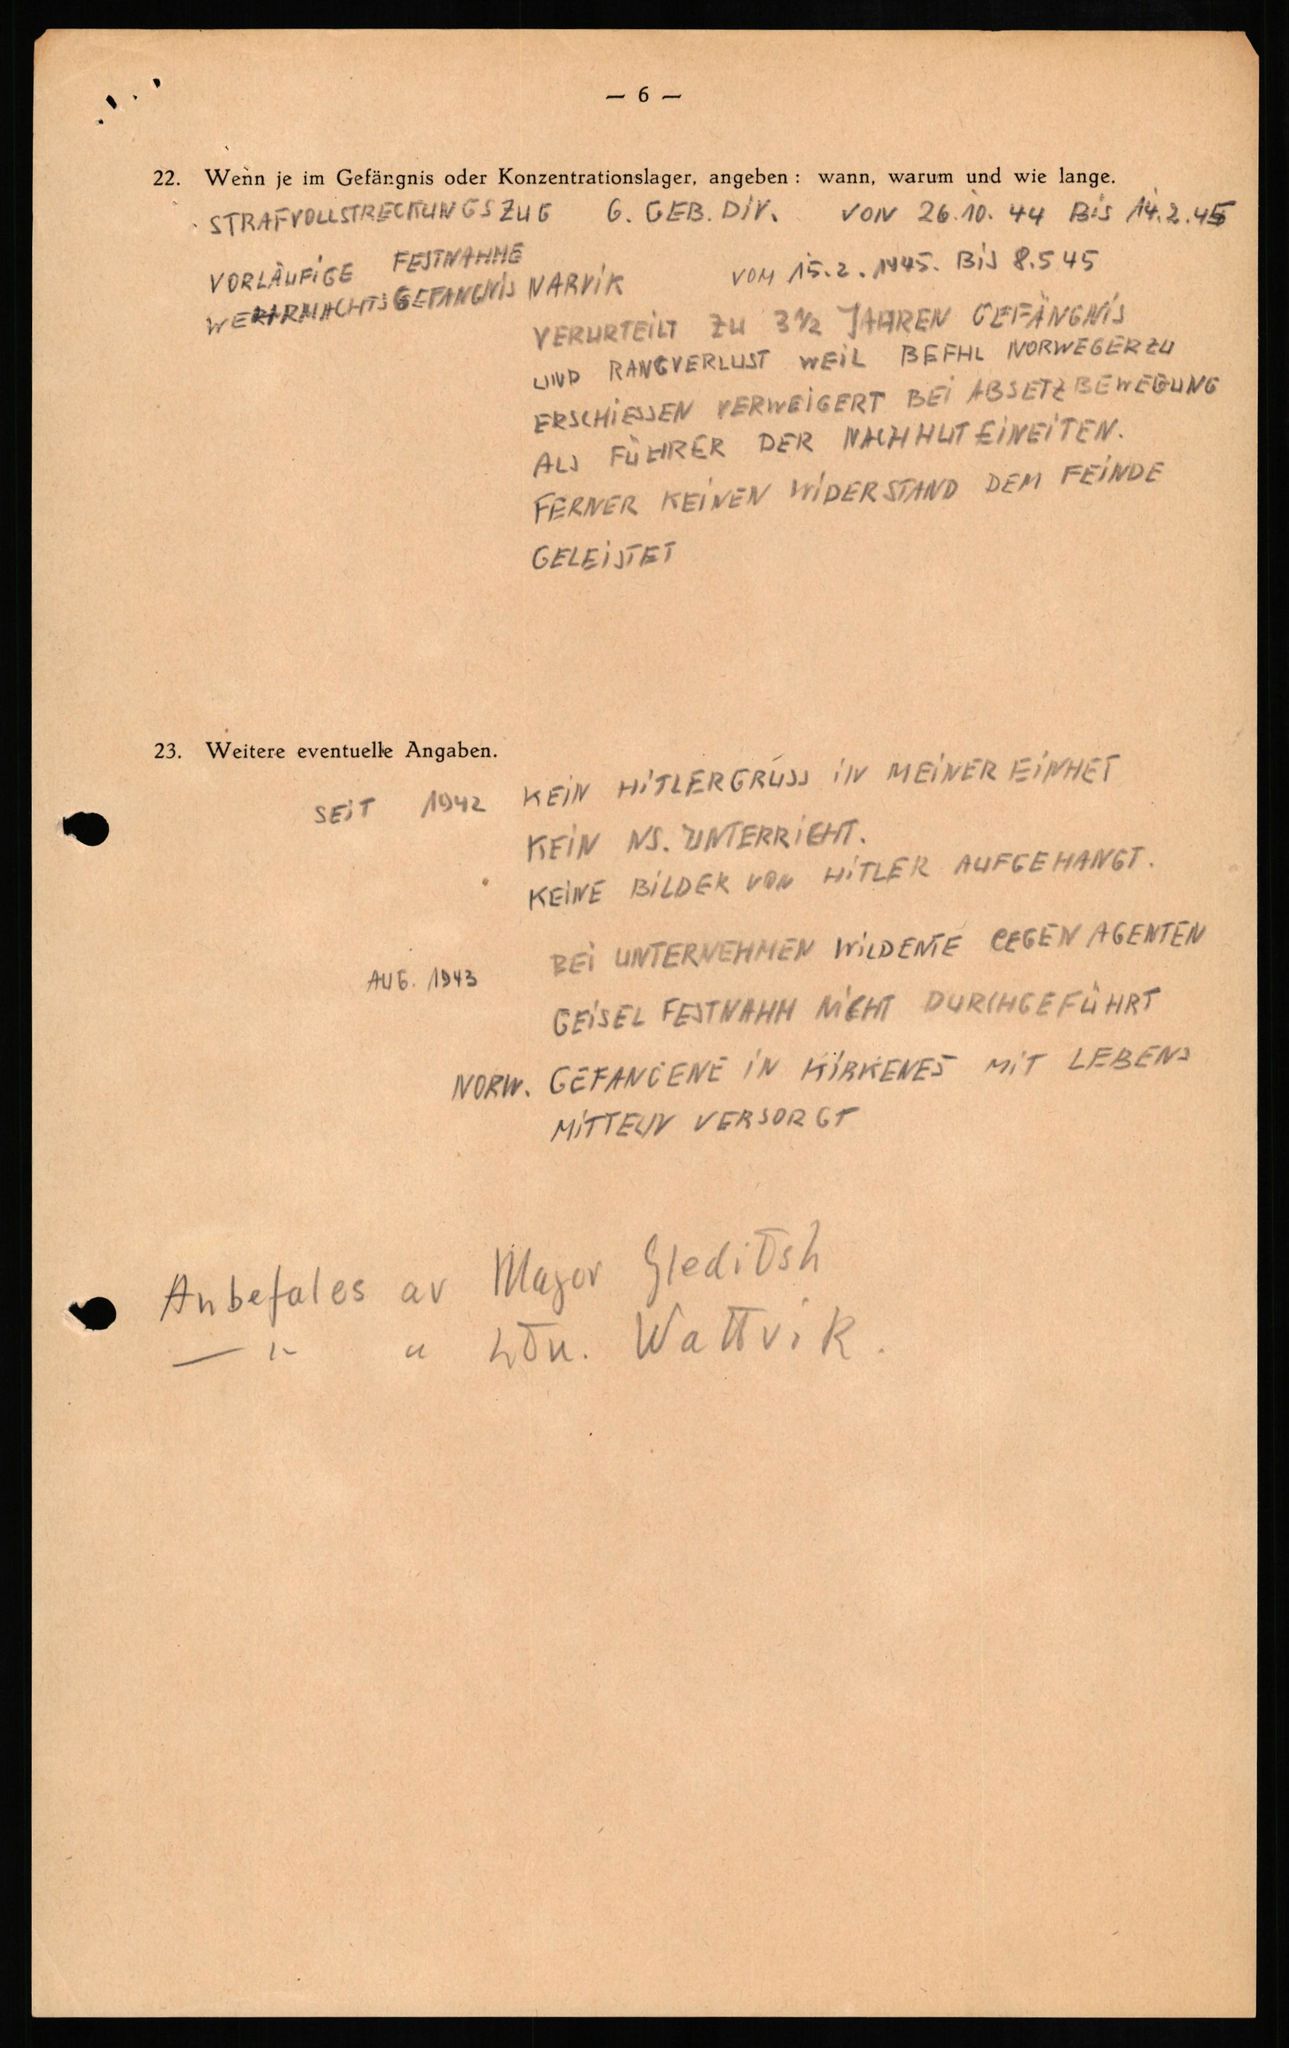 — 6 —
22. Wenn je im Gefängnis oder Konzentrationslager, angeben: wann, warum und wie lange.
STRAFVOLLSTRECKUNGSZUG 6. GEB. DIV. VON 26.10.44 BIS 14.2.45
VORLÄUFIGE FESTNAHME
WEHRMACHTSGEFANGNIS NARVIK VOM 15.2.1945. BIS 8.5 45
VERURTEILT ZU 3 1/2 JAHREN GEFÄNGNIS
UND RANGVERLUST WEIL BEFHL NORWEGER ZU
ERSCHIESSEN VERWEIGERT BEI ABSETZBEWEGUNG
ALS FÜHRER DER NACHHUT EINEITEN.
FERNER KEINEN WIDERSTAND DEM FEINDE
GELEISTET
23. Weitere eventuelle Angaben.
SEIT 1942 KEIN HITLERGRUSS IN MEINER EINHET
KEIN NS. UNTERRICHT.
KEINE BILDER VON HITLER AUFGEHANGT.
AUG. 1943 BEI UNTERNEHMEN WILDENTE GEGEN AGENTEN
GEISEL FESTNAHM NICHT DURCHGEFÜHRT
NORW. GEFANGENE IN KIRKENES MIT LEBENS
MITTELN VERSORGT
Anbefales av Major Gleditsh
— " — " Ltn. Wattvik.